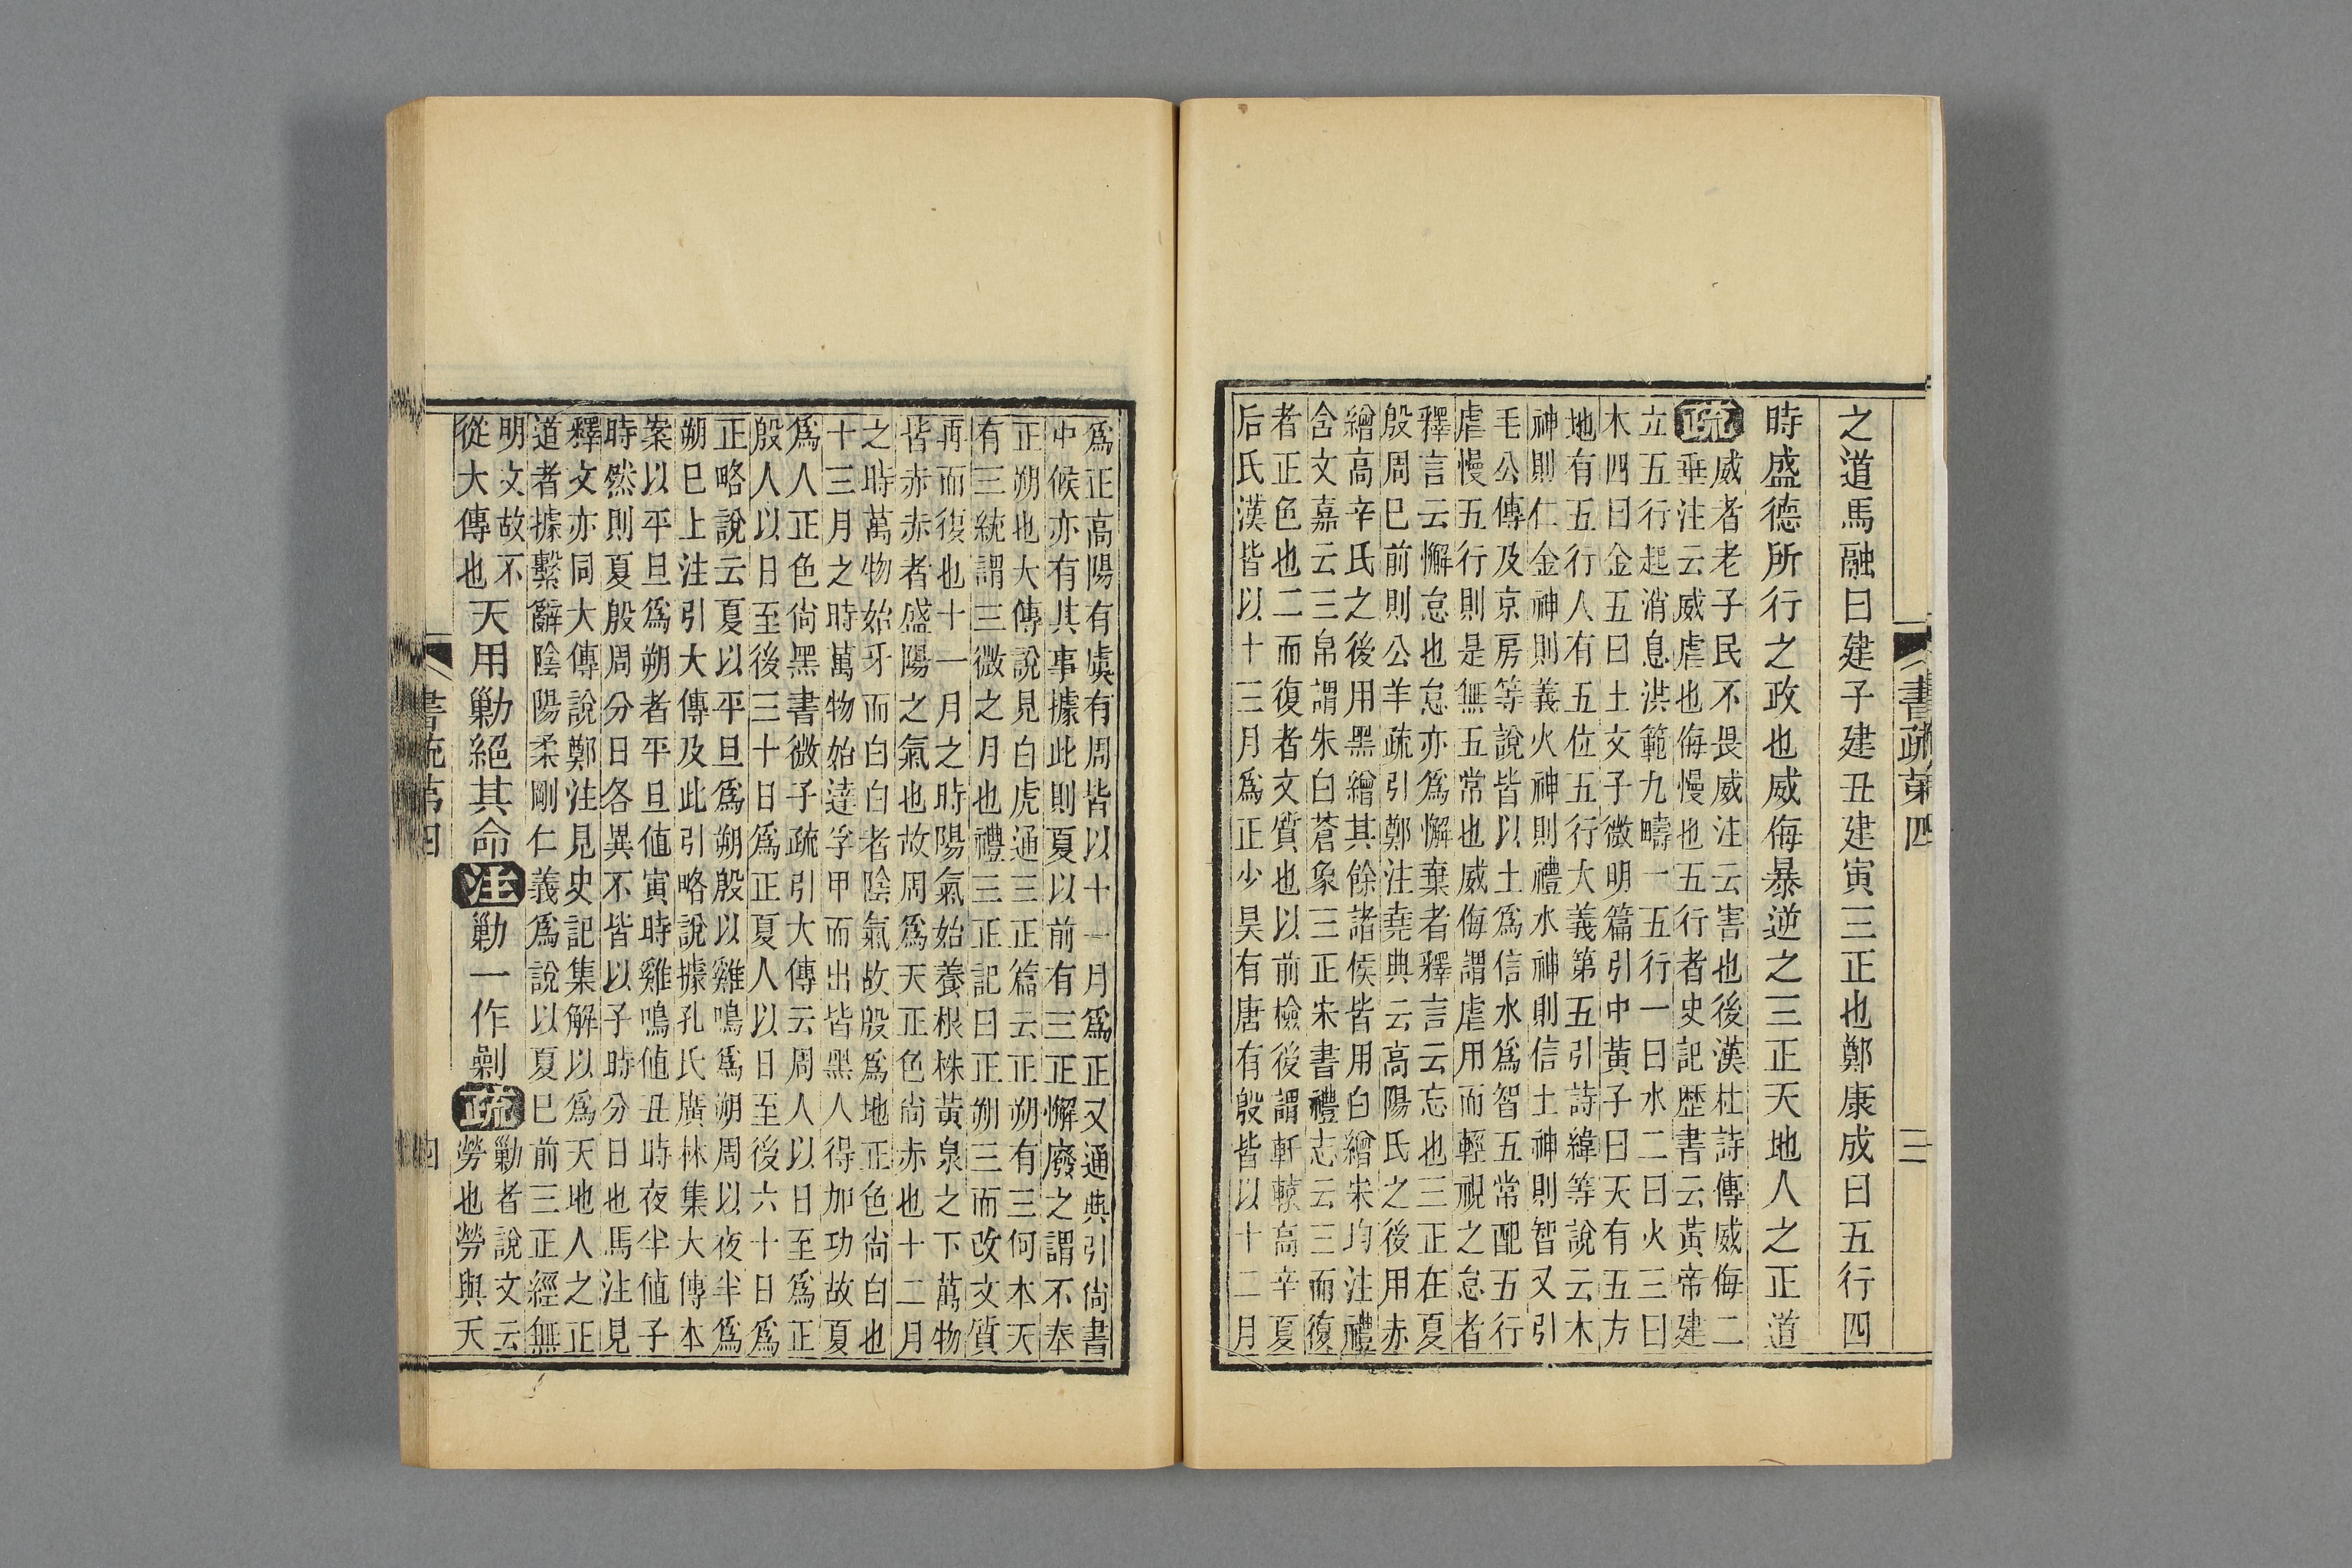 書疏第四
三
之道馬融曰建子建丑建寅三正也鄭康成曰五行四
時盛德所行之政也威侮暴逆之三正天地人之正道
疏
威者老子民不畏威注云害也後漢杜詩傳威侮二
垂注云威虐也侮慢也五行者史記歴書云黃帝建
立五行起消息洪範九疇一五行一曰水二曰火三曰
木四曰金五曰土文子微明篇引中黃子曰天有五方
地有五行人有五位五行大義第五引詩緯等說云木
神則仁金神則義火神則禮水神則信土神則智又引
毛公傳及京房等說皆以土爲信水爲智五常配五行
虐慢五行則是無五常也威侮謂虐用而輕視之怠者
釋言云懈怠也怠亦爲懈棄者釋言云忘也三正在夏
殷周巳前則公羊疏引鄭注堯典云高陽氏之後用赤
繒高辛氏之後用黑繒其餘諸侯皆用白繒宋均注禮
含文嘉云三帛謂朱白蒼象三正宋書禮志云三而復
者正色也二而復者文質也以前檢後謂軒轅高辛夏
后氏漢皆以十三月爲正少昊有唐有殷皆以十二月
爲正高陽有虞有周皆以十一月爲正又通典引尙書
中候亦有其事據此則夏以前有三正懈廢之謂不奉
正朔也大傳說見白虎通三正篇云正朔有三何本天
有三統謂三微之月也禮三正記曰正朔三而改文質
再而復也十一月之時陽氣始養根株黃泉之下萬物
皆赤赤者盛陽之氣也故周爲天正色尙赤也十二月
之時萬物始牙而白白者陰氣故殷爲地正色尙白也
十三月之時萬物始達孚甲而出皆黑人得加功故夏
爲人正色尙黑書微子疏引大傳云周人以日至爲正
殷人以日至後三十日爲正夏人以日至後六十日爲
正略說云夏以平旦爲朔殷以雞鳴爲朔周以夜半爲
朔巳上注引大傳及此引略說據孔氏廣林集大傳本
案以平旦爲朔者平旦値寅時雞鳴値丑時夜半値子
時然則夏殷周分日各異不皆以子時分日也馬注見
釋文亦同大傳說鄭注見史記集解以爲天地人之正
道者據繫辭陰陽柔剛仁義爲說以夏巳前三正經無
明文故不
從大傳也
天用勦絕其命注勦一作剿疏
勦者說文云
勞也勞與天
書疏第四
四